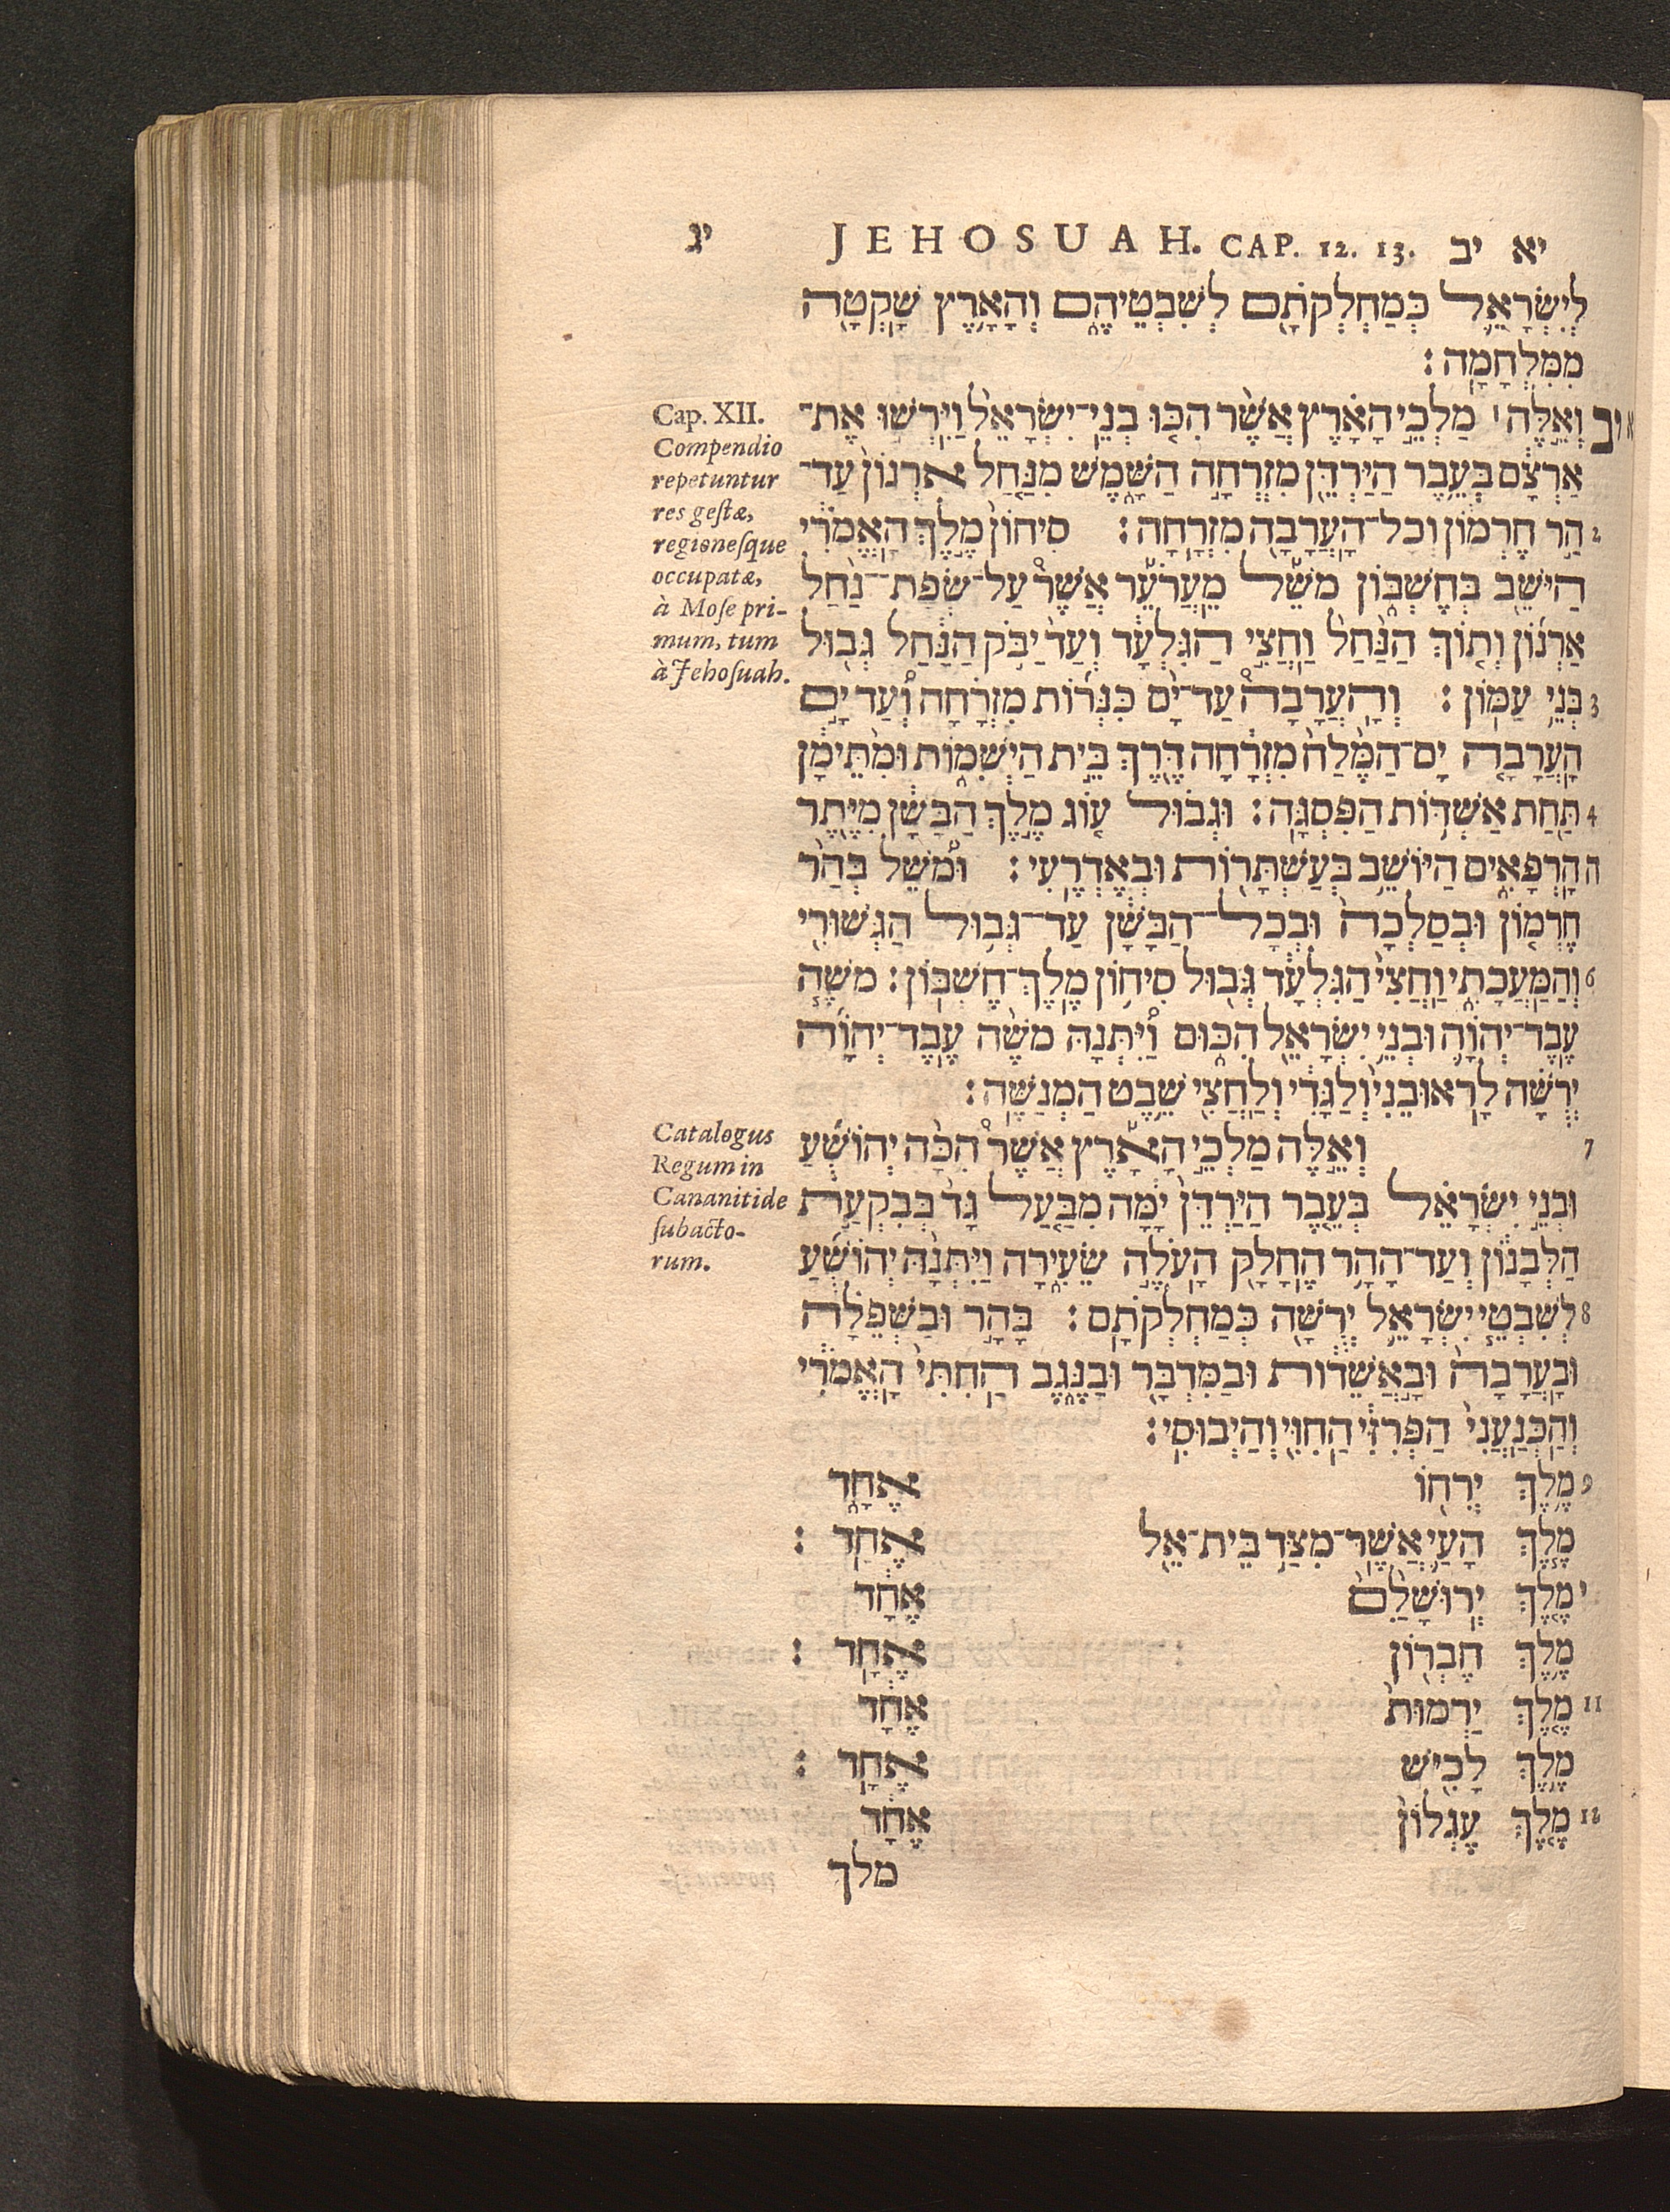 יא יב JEHOSUAH. CAP. 12. 13. יג
לְיִשְׂרָאֵל כְּמַחְלְקֹתָם לְשִׁבְטֵיהֶם וְהָאָרֶץ שָׁקְטָה
מִמִּלְחָמָה׃
יב א וְאֵלֶּה׀ מַלְכֵי הָאָרֶץ אֲשֶׁר הִכּוּ בְנֵי־יִשְׂרָאֵל וַיִּרְשׁוּ אֶת־
אַרְצָם בְּעֵבֶר הַיַּרְדֵּן מִזְרְחָה הַשָּׁמֶשׁ מִנַּחַל אַרְנוֹן עַד־
2 הַר חֶרְמוֹן וְכָל־הָעֲרָבָה מִזְרָחָה׃ סִיחוֹן מֶלֶךְ הָאֱמֹרִי
הַיֹּשֵׁב בְּחֶשְׁבּוֹן מֹשֵׁל מֵעֲרֹעֵר אֲשֶׁר עַל־שְׂפַת־נַחַל
אַרְנוֹן וְתוֹךְ הַנַּחַל וַחֲצִי הַגִּלְעָד וְעַד יַבֹּק הַנַּחַל גְּבוּל
3 בְּנֵי עַמּוֹן׃ וְהָעֲרָבָה עַד־יָם כִּנְּרוֹת מִזְרָחָה וְעַד יָם
הָעֲרָבָה יָם־הַמֶּלַח מִזְרָחָה דֶּרֶךְ בֵּית הַיְשִׁמוֹת וּמִתֵּימָן
4 תַּחַת אַשְׁדּוֹת הַפִּסְגָּה׃ וּגְבוּל עוֹג מֶלֶךְ הַבָּשָׁן מִיֶּתֶר
ה הָרְפָאִים הַיּוֹשֵׁב בְּעַשְׁתָּרוֹת וּבְאֶדְרֶעִי׃ וּמֹשֵׁל בְּהַר
חֶרְמוֹן וּבְסַלְכָה וּבְכָל־הַבָּשָׁן עַד־גְּבוּל הַגְּשׁוּרִי
6 וְהַמַּעֲכָתִי וַחֲצִי הַגִּלְעָד גְּבוּל סִיחוֹן מֶלֶךְ־חֶשְׁבּוֹן׃ מֹשֶׁה
עֶבֶד־יְהוָה וּבְנֵי יִשְׂרָאֵל הִכּוּם וַיִּתְּנָהּ מֹשֶׁה עֶבֶד־יְהוָה
יְרֻשָּׁה לָרְאוּבֵנִי וְלַגָּדִי וְלַחֲצִי שֵׁבֶט הַמְנַשֶּׁה׃
7 וְאֵלֶּה מַלְכֵי הָאָרֶץ אֲשֶׁר הִכָּה יְהוֹשֻׁעַ
וּבְנֵי יִשְׂרָאֵל בְּעֵבֶר הַיַּרְדֵּן יָמָּה מִבַּעַל גָּד בְּבִקְעַת
הַלְּבָנוֹן וְעַד־הָהָר הֶחָלָק הָעֹלֶה שֵׂעִירָה וַיִּתְּנָהּ יְהוֹשֻׁעַ
8 לְשִׁבְטֵי יִשְׂרָאֵל יְרֻשָּׁה כְּמַחְלְקֹתָם׃ בָּהָר וּבַשְּׁפֵלָה
וּבָעֲרָבָה וּבָאֲשֵׁדוֹת וּבַמִּדְבָּר וּבַנֶּגֶב הַחִתִּי הָאֱמֹרִי
וְהַכְּנַעֲנִי הַפְּרִזִּי הַחִוִּי וְהַיְבוּסִי׃
9 מֶלֶךְ יְרִחוֹ אֶחָד
מֶלֶךְ הָעַי אֲשֶׁר־מִצַּד בֵּית־אֵל אֶחָד׃
י מֶלֶךְ יְרוּשָׁלִַם אֶחָד
מֶלֶךְ חֶבְרוֹן אֶחָד׃
11 מֶלֶךְ יַרְמוּת אֶחָד
מֶלֶךְ לָכִישׁ אֶחָד׃
12 מֶלֶךְ עֶגְלוֹן אֶחָד
מלך
Cap. XII.
Compendio
repetuntur
res gestæ,
regionesque
occupatæ,
à Mose pri-
mum, tum
à Jehosuah.
Catalogus
Regum in
Cananitide
subacto-
rum.